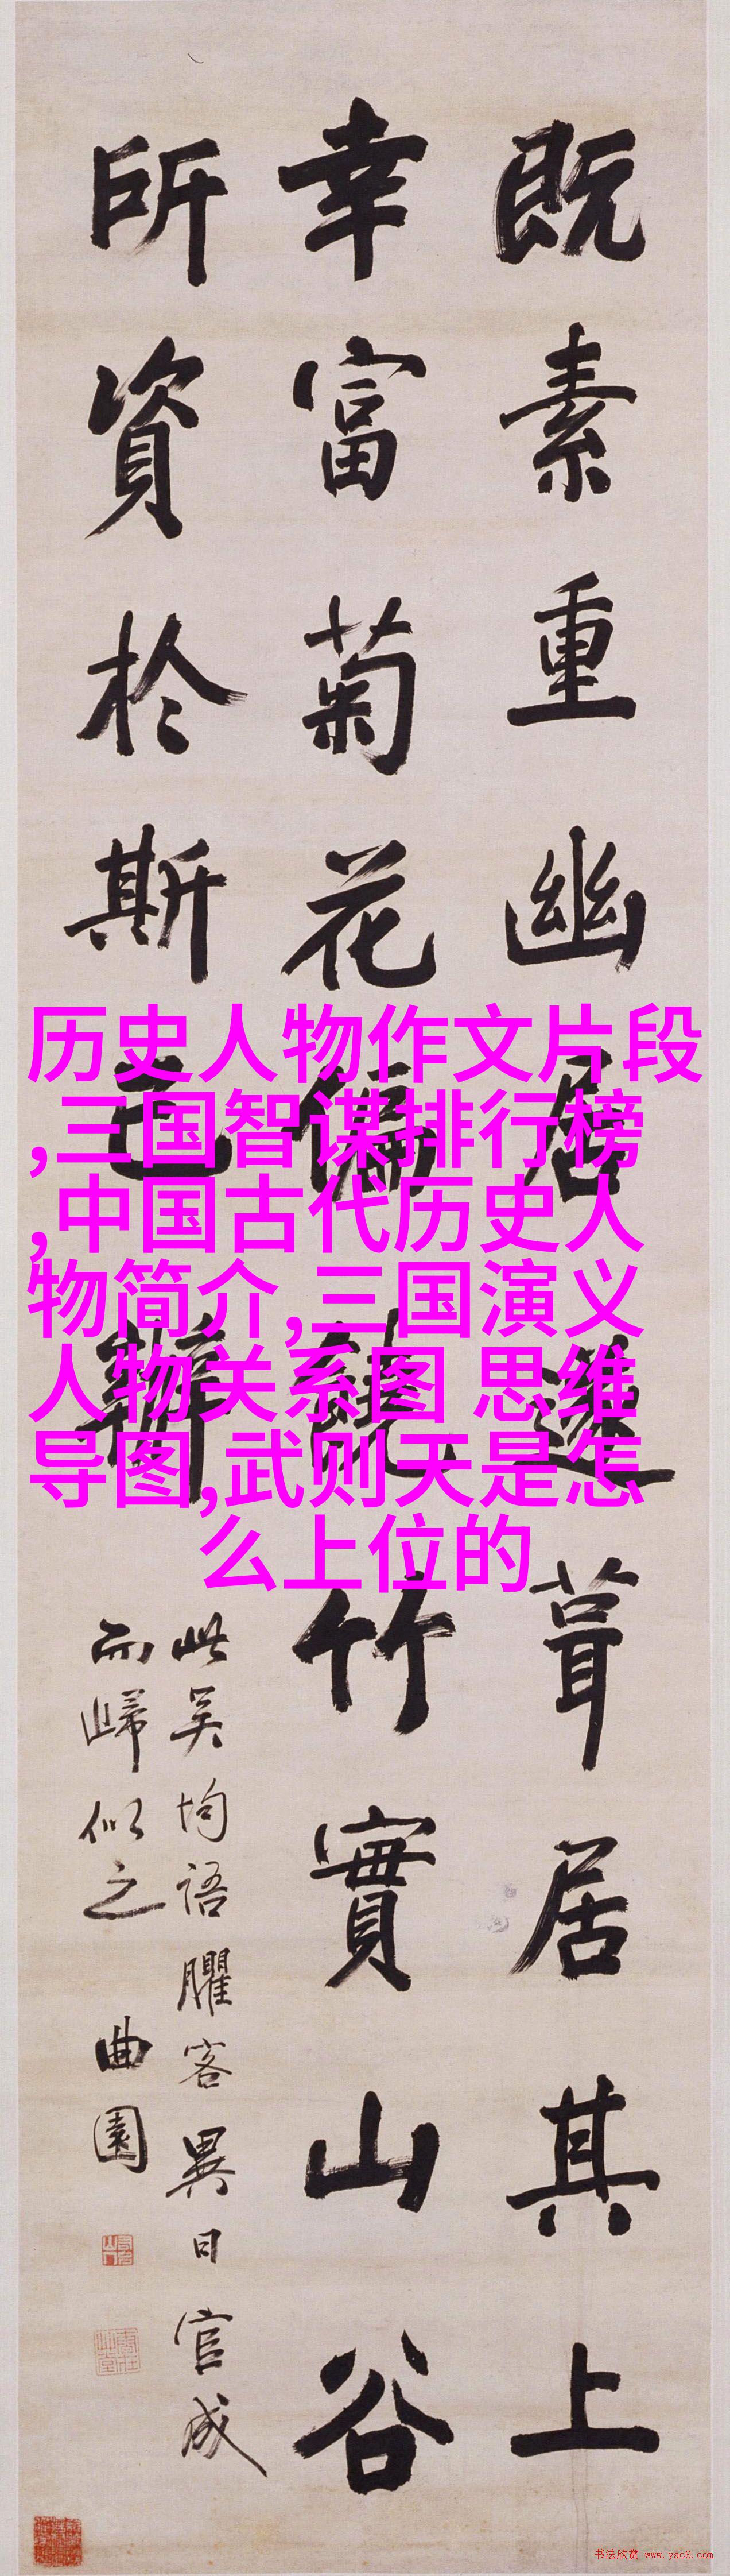 既素重幽居遂葺居其上
幸富菊花偏饒竹實山谷
所資於斯已辦
此吴均語臞客異日官成
而歸似之 曲園
历史人物作文片段
,三国智谋排行榜
,中国古代历史人
物简介,三国演义
人物关系图 思维
导图,武则天是怎
么上位的
书法欣赏 www.yac8.com